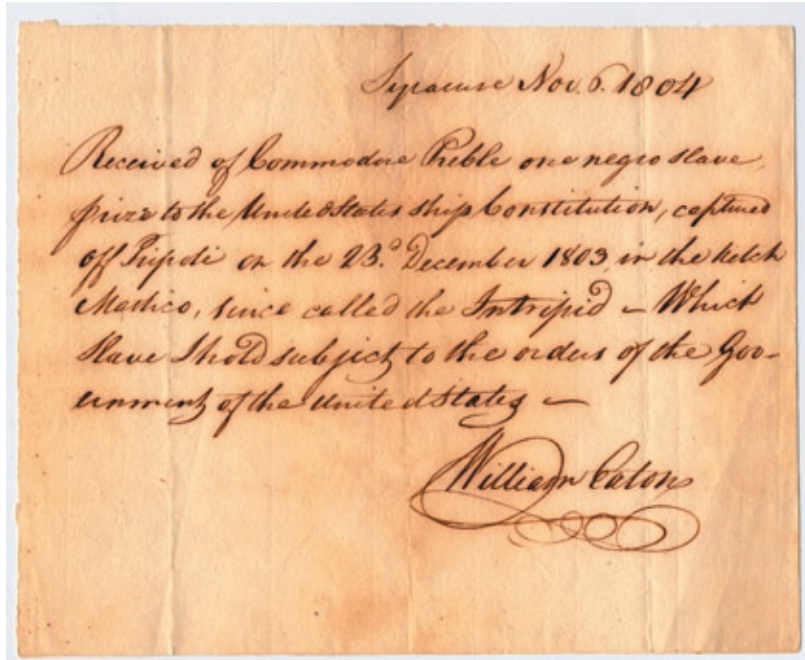 Syracuse Nov. 6. 1804
Received of Commodore Preble one negro slave,
prize to the United States ship Constitution, captured
off Tripoli on the 23.d December 1803, in the ketch
Mastico, since called the Intripid – Which
slave I hold subject to the orders of the Gov-
ernment of the United States –
William Eaton